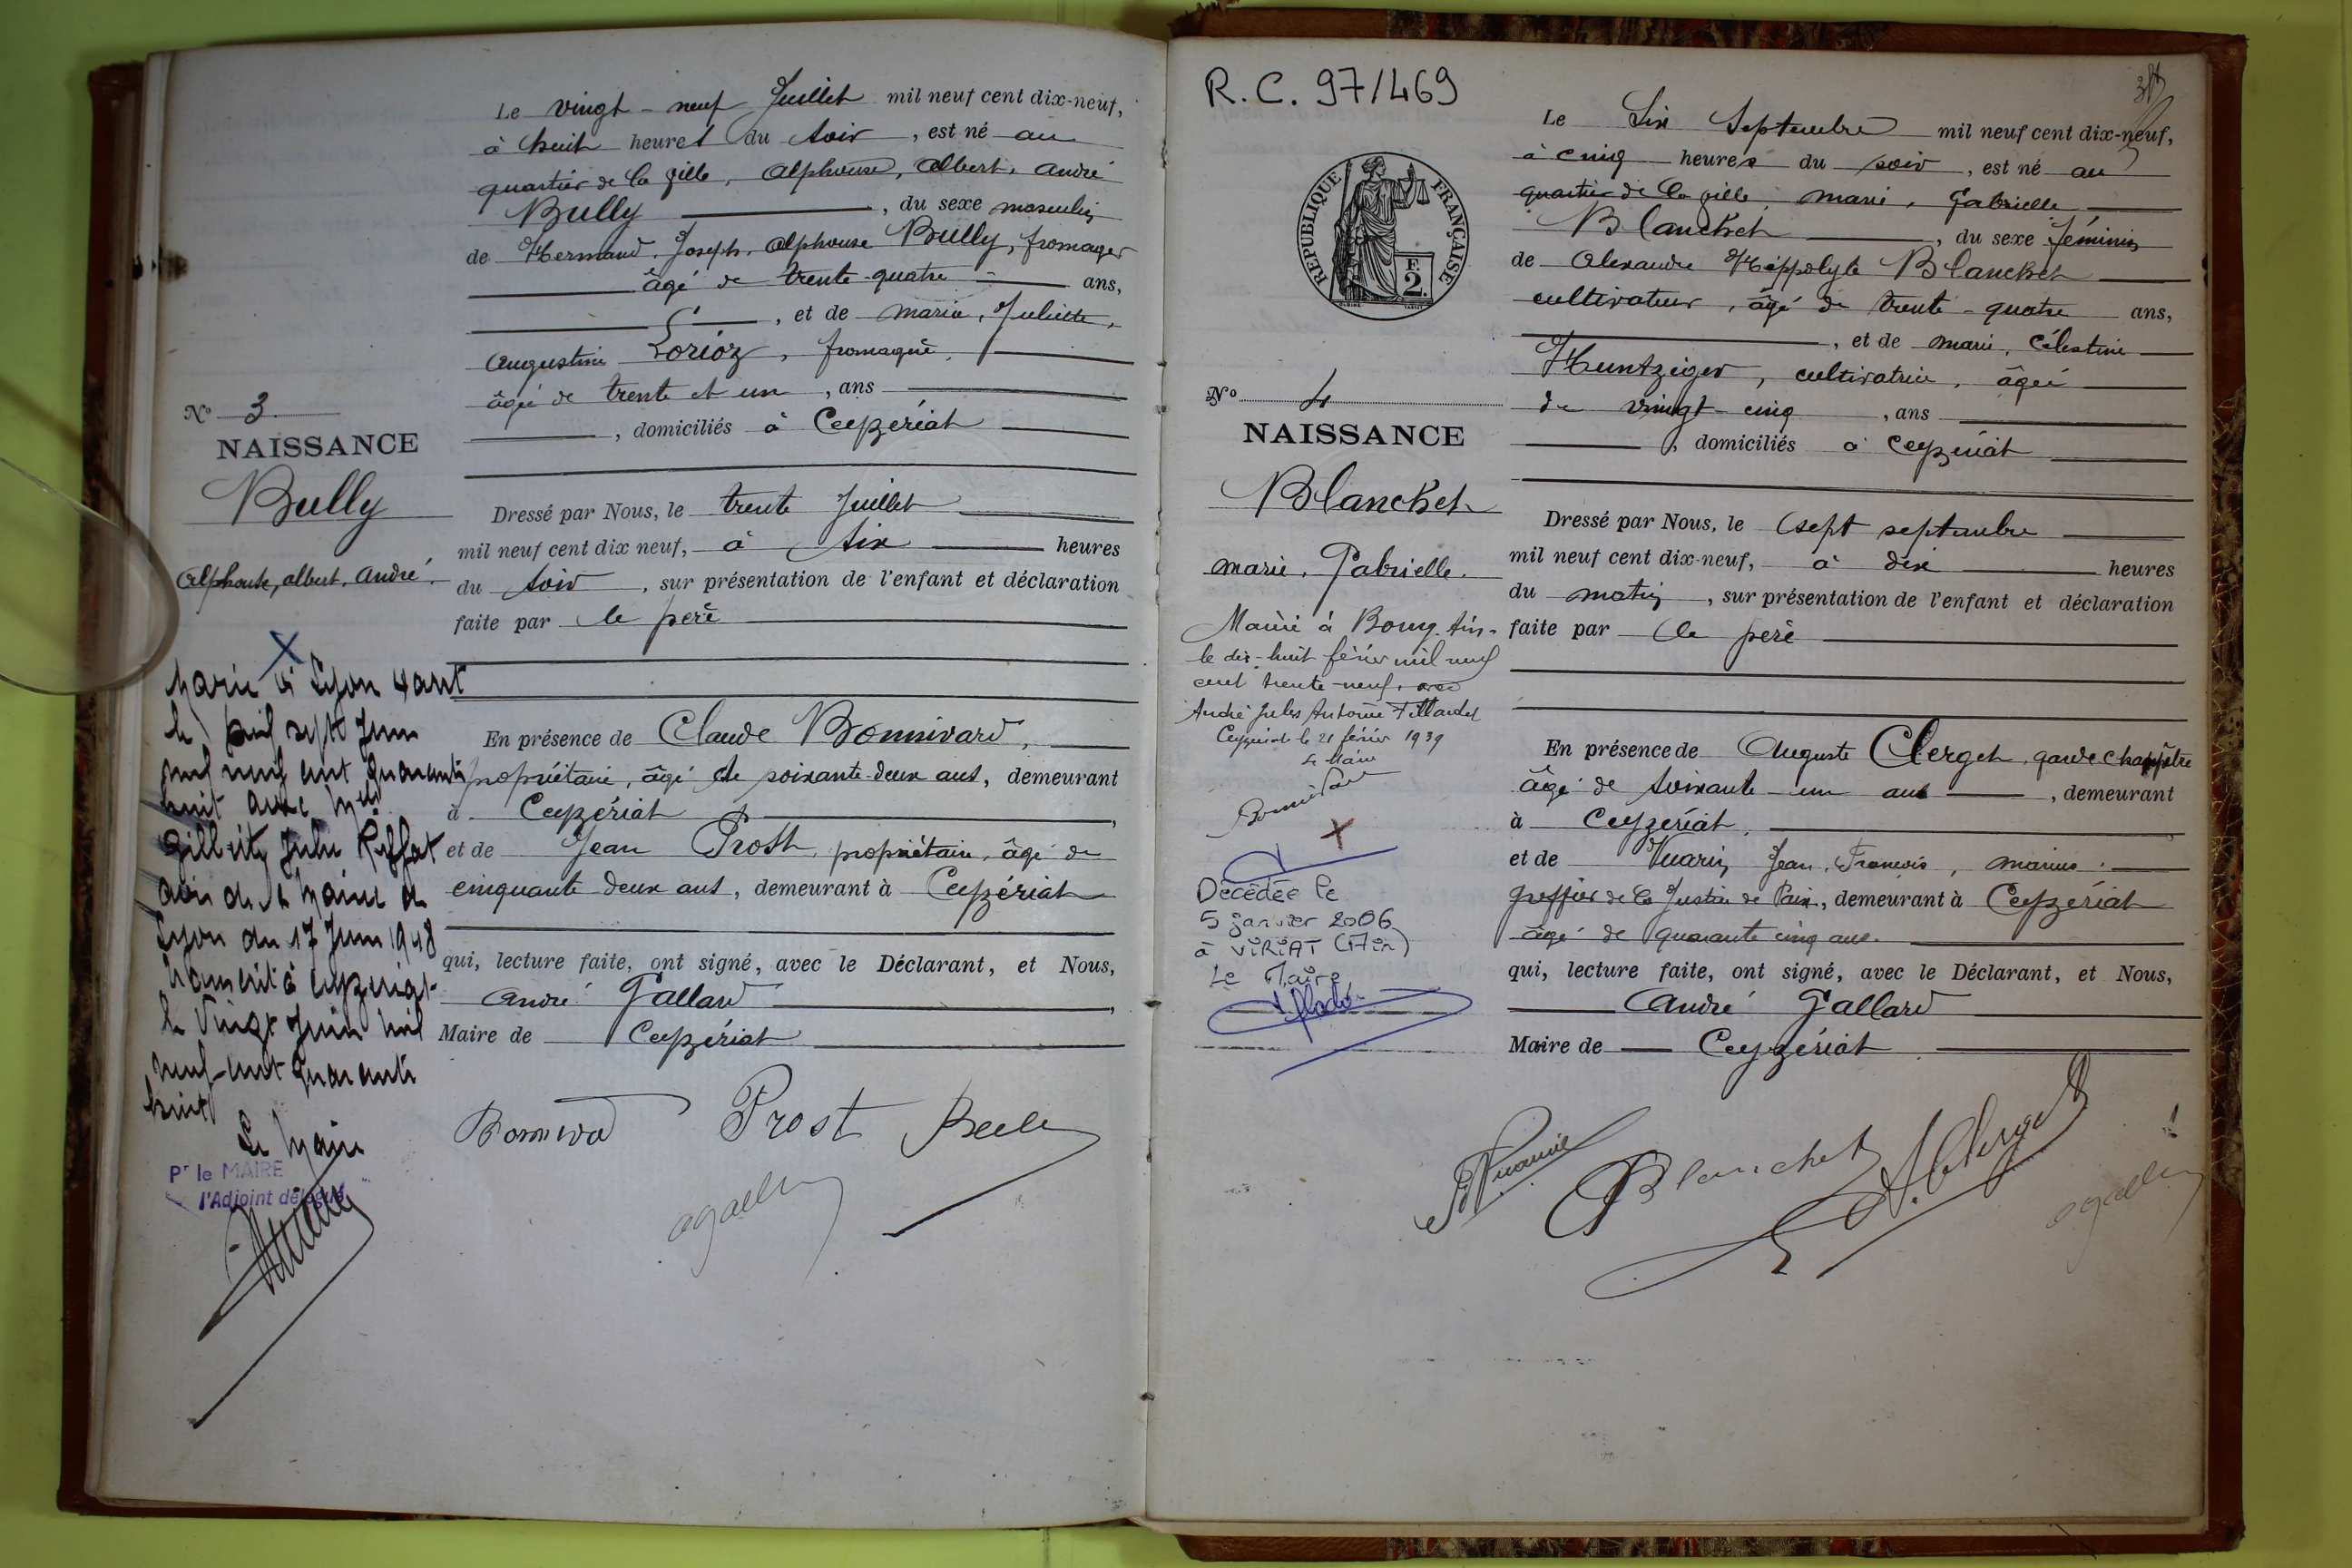 Le vingt-neuf Juillet mil neuf cent dix-neuf,
à huit heures du soir, est né au
quartier de la ville, Alphonse, Albert, André
Bully, du sexe masculin
de Hermand, Joseph, Alphonse Bully, fromager
âgé de trente-quatre ans,
, et de Marie, Juliette,
Augustine Lorioz, fromagère,
âgée de trente et un, ans
, domiciliés à Ceyzériat
N° 3
NAISSANCE
Bully
Alphonse, Albert, André.
Dressé par Nous, le trente Juillet
mil neuf cent dix neuf, à six heures
du soir, sur présentation de l'enfant et déclaration
faite par le père
En présence de Claude Bonnivard,
propriétaire, âgé de soixante-deux ans, demeurant
à Ceyzériat,
et de Jean Prost, propriétaire, âgé de
cinquante deux ans, demeurant à Ceyzériat
qui, lecture faite, ont signé, avec le Déclarant, et Nous,
André Gallard,
Maire de Ceyzériat
Marié à Lyon
le sept Juin
mil neuf cent quarante
huit avec
Julie
avis de la Mairie de
Lyon du 17 Juin 1948
Transcrit à Ceyzériat
le Vingt Juin mil
neuf-cent quarante
huit
Le Maire
Pr le MAIRE
l'Adjoint délégué
Prost
agallard
R.C. 97/469
RÉPUBLIQUE FRANÇAISE
F.
2.
N° 4
NAISSANCE
Blanchet
Marie, Gabrielle.
Mariée à Bourg. Ain.
le dix-huit février mil neuf
cent trente-neuf, avec
André Jules Antoine
Ceyzériat le 21 février 1939
Le Maire
Décédée le
5 janvier 2006
à VIRIAT (Ain)
Le Maire
Le Six Septembre mil neuf cent dix-neuf,
à cinq heures du soir, est né au
quartier de la ville, Marie, Gabrielle
Blanchet, du sexe féminin
de Alexandre Hippolyte Blanchet
cultivateur, âgé de trente-quatre ans,
, et de Marie, Célestine
Huntziger, cultivatrice, âgée
de vingt-cinq, ans
, domiciliés à Ceyzériat
Dressé par Nous, le sept septembre
mil neuf cent dix-neuf, à dix heures
du matin, sur présentation de l'enfant et déclaration
faite par le père
En présence de Auguste Clerget, garde champêtre
âgé de soixante-un ans, demeurant
à Ceyzériat,
et de Vuarin Jean, François, Marius.
greffier de la Justice de Paix, demeurant à Ceyzériat
âgé de quarante cinq ans.
qui, lecture faite, ont signé, avec le Déclarant, et Nous,
André Gallard
Maire de Ceyzériat
Blanchet
A. Clerget
agallard